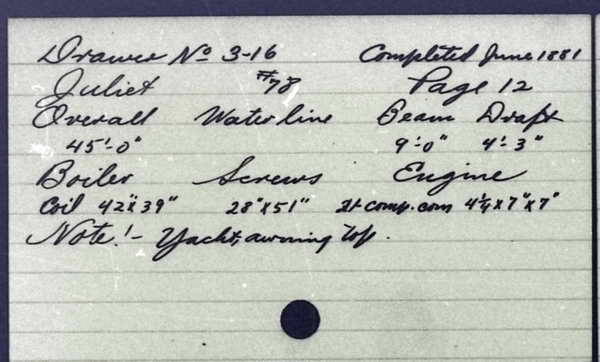 Drawer No 3-16 Completed June 1881
Juliet #78 Page 12
Overall Water line Beam Draft
45'-0" 9'-0" 4'-3"
Boiler Screws Engine
Coil 42"x39" 28"x51" comp. com 4¼x7"x7"
Note! - Yacht, awning top.